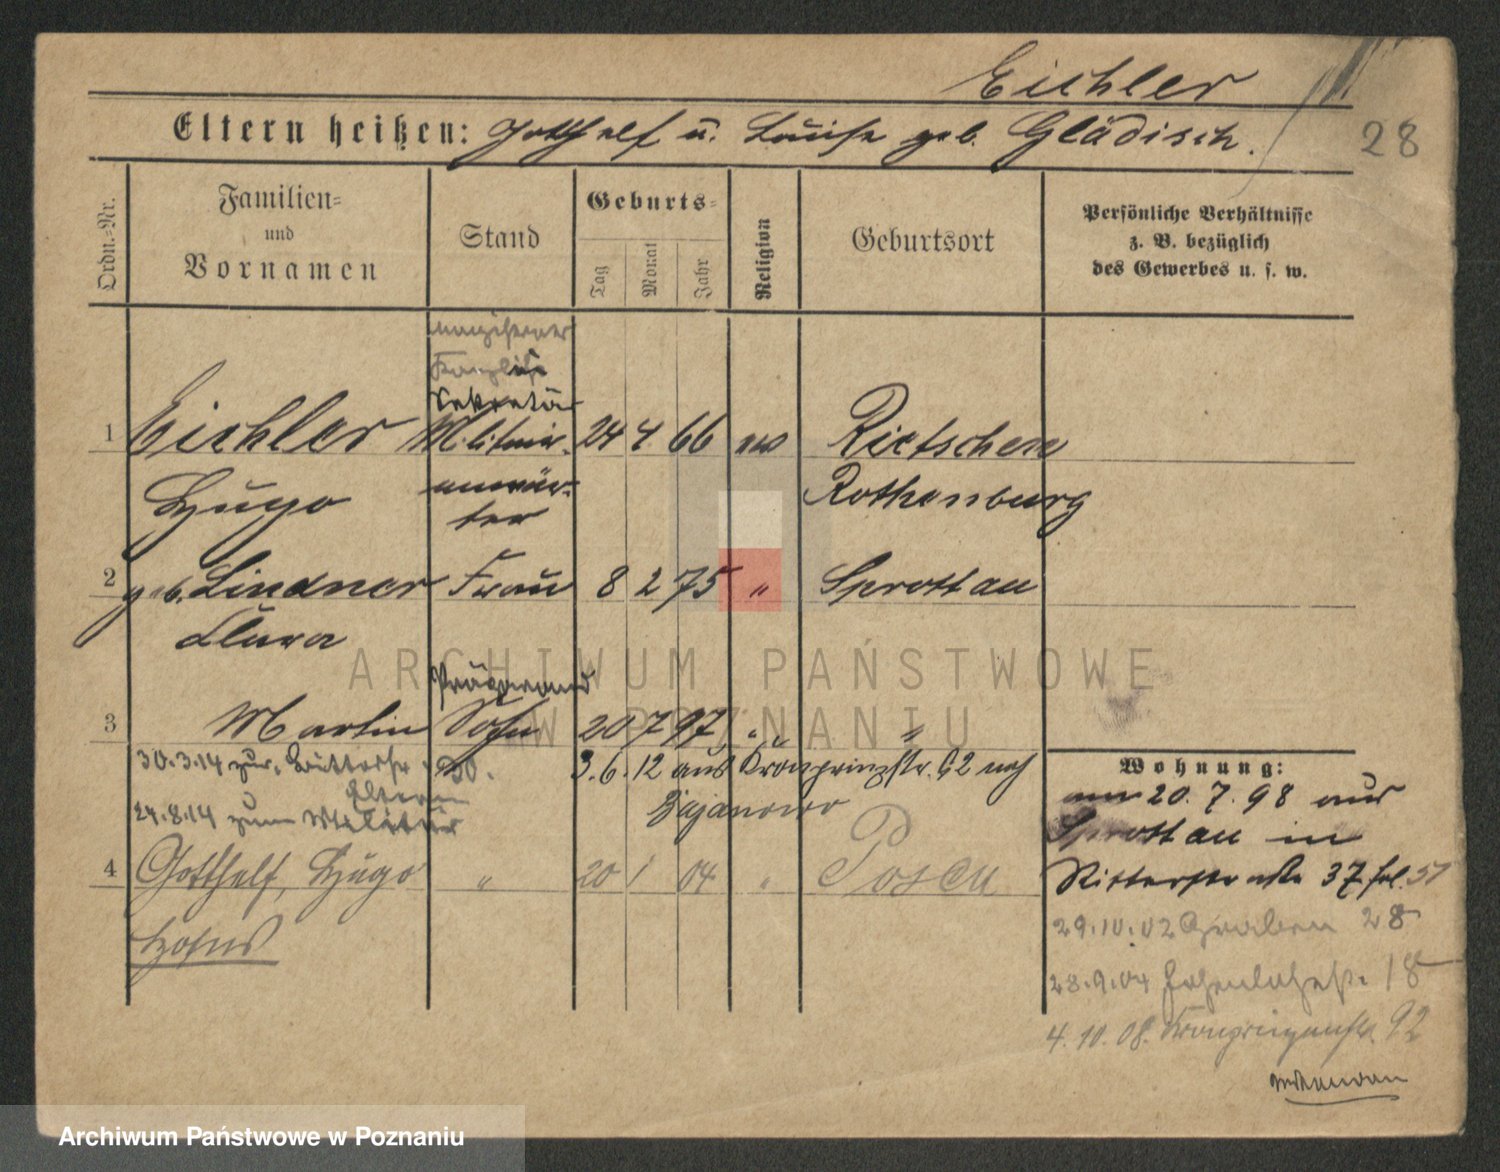 Eichler
Eltern heißen: Gotthelf u. Luise geb. Glädisch.
28
Ordn.-Nr.
Familien-
und
Vornamen
Stand
Geburts-
Tag
Monat
Jahr
Religion
Geburtsort
Persönliche Verhältnisse
z. B. bezüglich
des Gewerbes u. s. w.
Sekretär
1 Eichler Militär- 24 4 66 ev Rietschen
Hugo anwär- Rothenburg
ter
2 geb. Lindner Frau 8 2 75 " Sprottau
Clara
Präparand
3 Martin Sohn 20 7 97 " "
30.3.14 zur.
3.6.12 aus Kronprinzstr. 92 nach
Eltern
24.8.14 zum Militär
Bojanowo
4 Gotthelf, Hugo " 20 1 04 " Posen
Hohns
Wohnung:
am 20.7.98 aus
Sprottau in
Ritterstraße 37 fol. 51
29.10.02 Graben 28
28.9.04 Hohenlohestr. 18
4.10.08. Kronprinzenstr. 92
ARCHIWUM PAŃSTWOWE
W POZNANIU
Archiwum Państwowe w Poznaniu